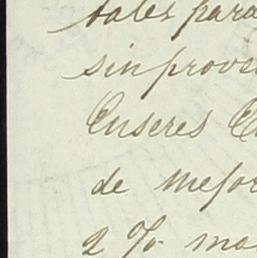 tales para
sin prove
Enseres
de mejor
2 %. ma